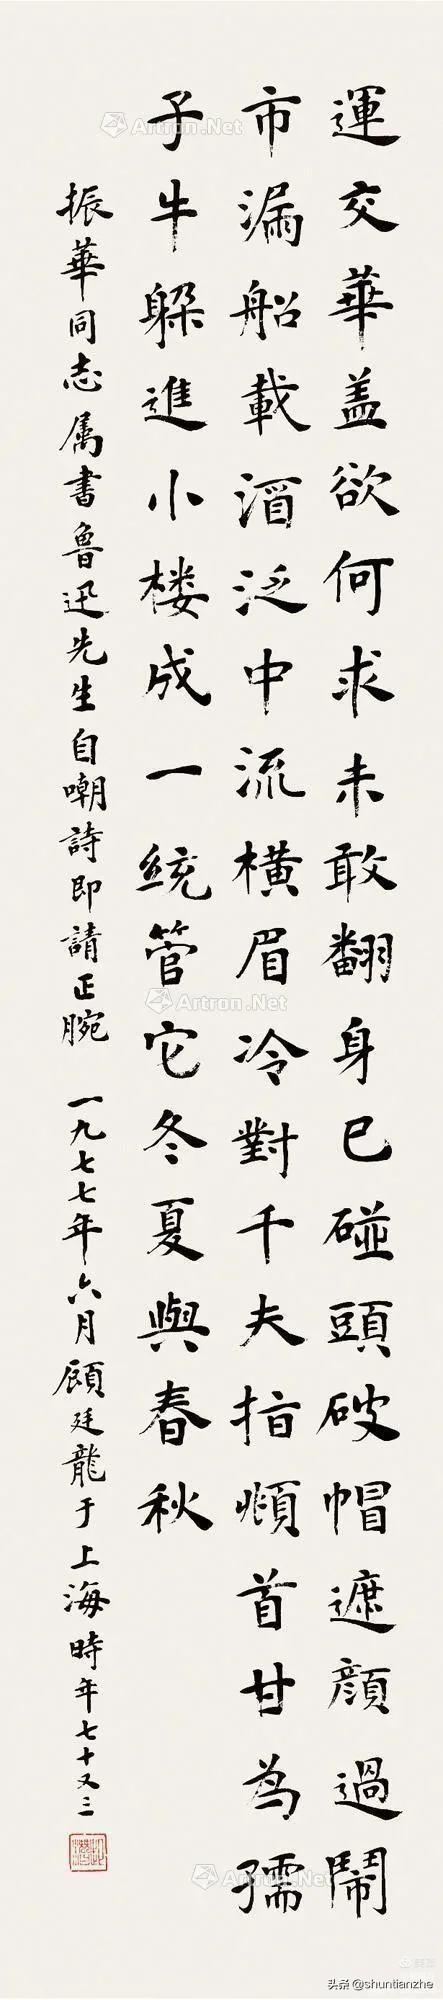 運交華盖欲何求未敢翻身已碰頭破帽遮顔過鬧
市漏船載酒泛中流橫眉冷對千夫指頫首甘為孺
子牛躲進小楼成一統管它冬夏與春秋
振華同志属書魯迅先生自嘲詩即請正腕 一九七七年六月顧廷龍于上海時年七十又三
Artron.Net
Artron.Net
Artron.Net
头条 @shuntianzhe